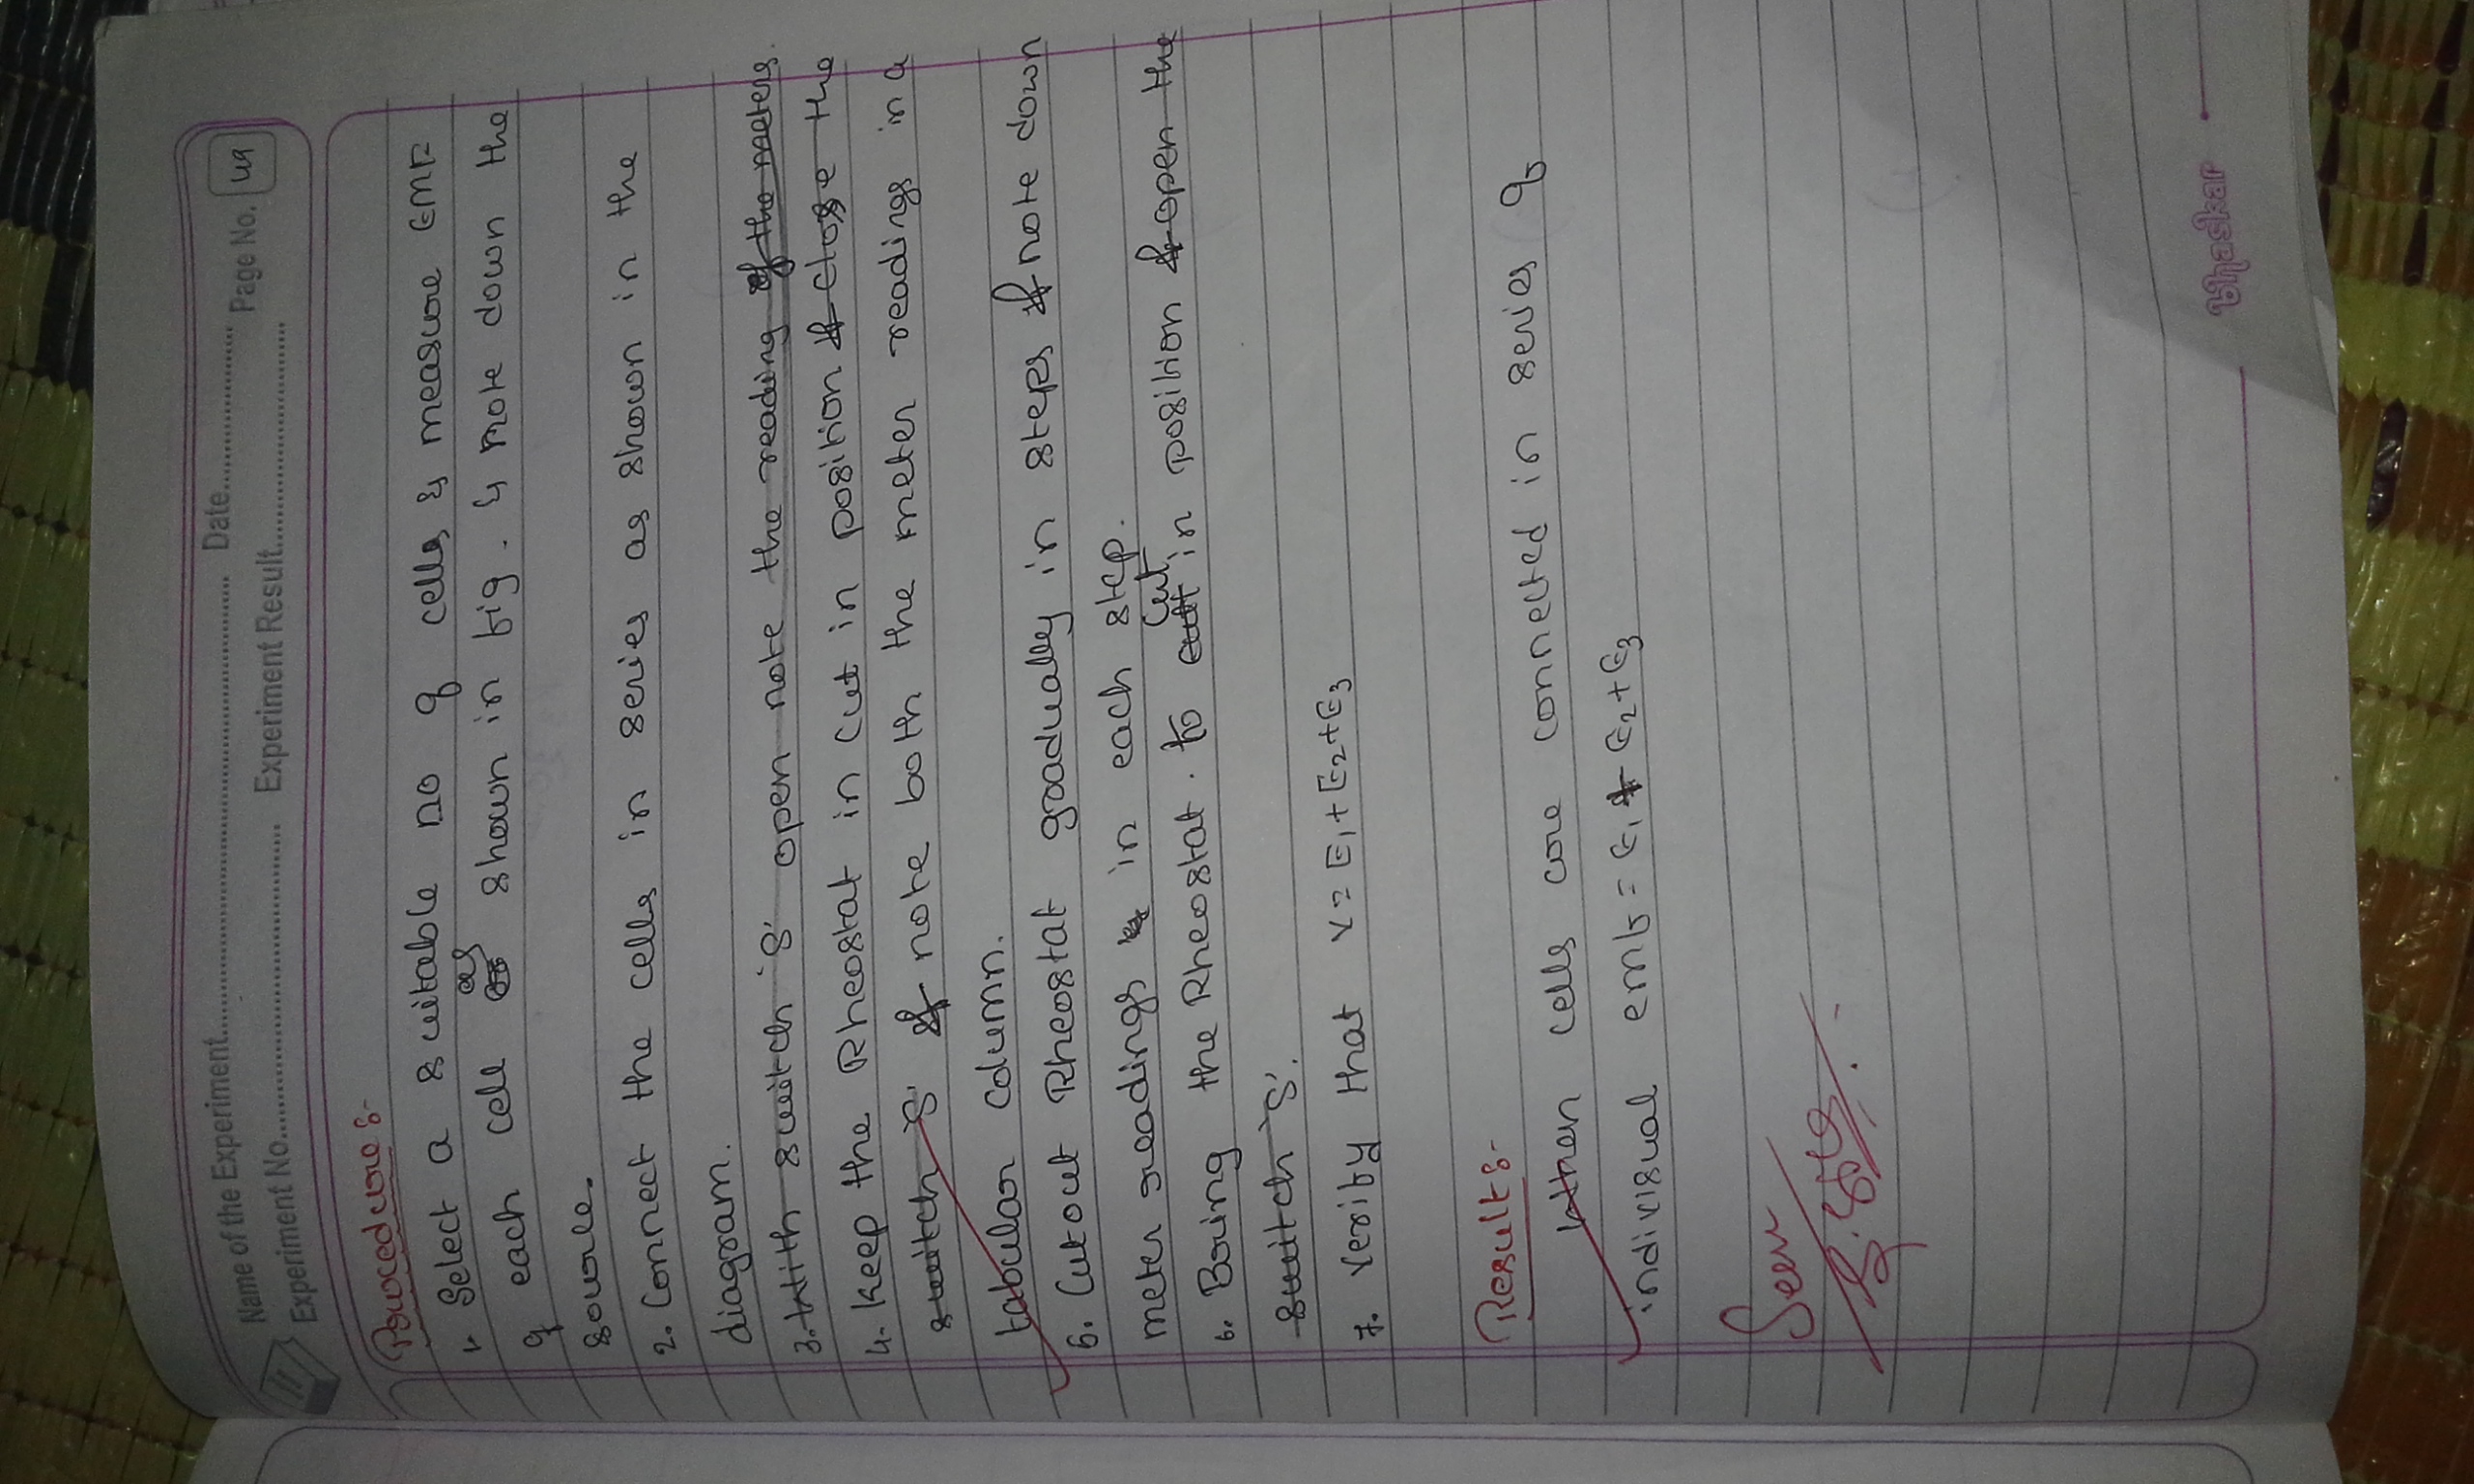 Name of the Experiment.................... Date.................... Page No. 49
Experiment No.................... Experiment Result....................
Procedure:-
1. Select a suitable no of cells & measure EMF
of each cell as shown in fig. & note down the
source.
2. Connect the cells in series as shown in the
diagram.
3. With switch 'S' open note the reading of the meters.
4. Keep the Rheostat in cut in position & close the
switch 'S' & note both the meter readings in a
tabular column.
5. Cutout Rheostat gradually in steps & note down
meter readings in each step.
6. Bring the Rheostat. to cut in position & open the
switch 'S'.
7. Verify that V = E1 + E2 + E3
Result:-
When cells are connected in series of
individual emf = E1 + E2 + E3
Seen
bhaskar